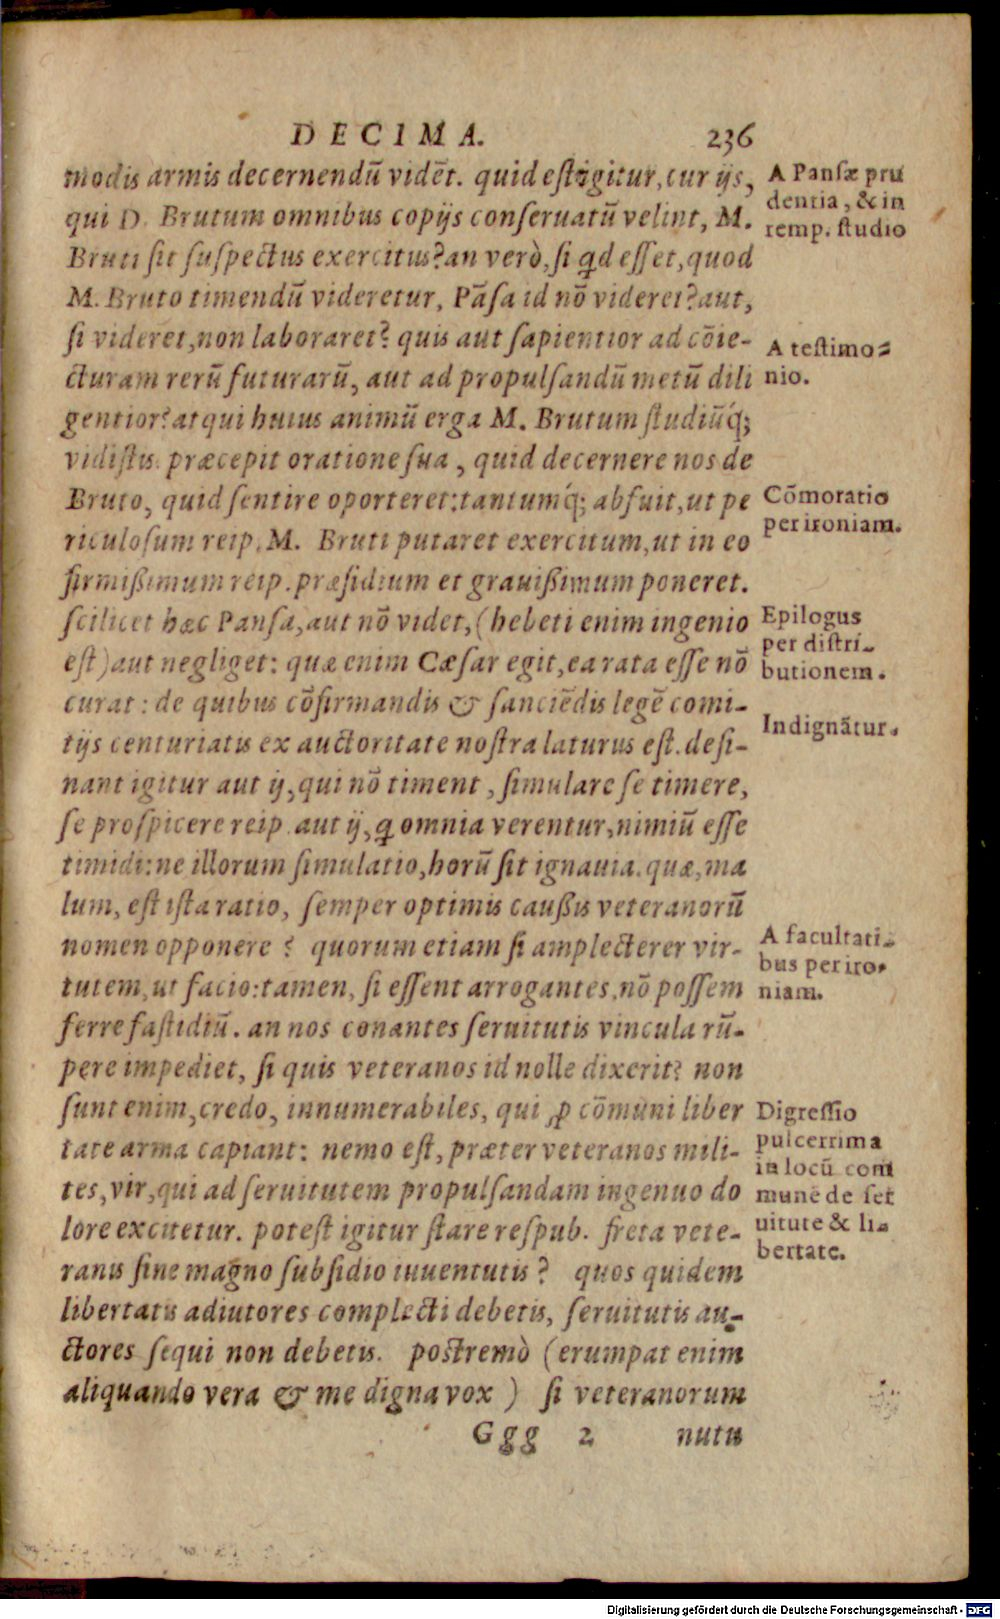 DECIMA. 236
modis armis decernendū vidēt. quid est igitur, cur ijs,
qui D. Brutum omnibus copijs conseruatū velint, M.
Bruti sit suspectus exercitus? an verò, si qd esset, quod
M. Bruto timendū videretur, Pāsa id nō videret? aut,
si videret, non laboraret? quis aut sapientior ad cōie-
cturam rerū futurarū, aut ad propulsandū metū dili
gentior? atqui huius animū erga M. Brutum studiūq́;
vidistis. præcepit oratione sua, quid decernere nos de
Bruto, quid sentire oporteret: tantumq́; abfuit, ut pe
riculosum reip. M. Bruti putaret exercitum, ut in eo
firmißimum reip. præsidium et grauißimum poneret.
scilicet hæc Pansa, aut nō videt, (hebeti enim ingenio
est) aut negliget: quæ enim Cæsar egit, ea rata esse nō
curat: de quibus cōfirmandis & sanciēdis legē comi-
tijs centuriatis ex auctoritate nostra laturus est. desi-
nant igitur aut ij, qui nō timent, simulare se timere,
se prospicere reip. aut ij, q omnia verentur, nimiū esse
timidi: ne illorum simulatio, horū sit ignauia. quæ, ma
lum, est ista ratio, semper optimis caußis veteranorū
nomen opponere? quorum etiam si amplecterer vir-
tutem, ut facio: tamen, si essent arrogantes, nō possem
ferre fastidiū. an nos conantes seruitutis vincula rū-
pere impediet, si quis veteranos id nolle dixerit? non
sunt enim, credo, innumerabiles, qui ꝓ cōmuni liber
tate arma capiant: nemo est, præter veteranos mili-
tes, vir, qui ad seruitutem propulsandam ingenuo do
lore excitetur. potest igitur stare respub. freta vete-
ranis sine magno subsidio iuuentutis? quos quidem
libertatis adiutores complecti debetis, seruitutis au-
ctores sequi non debetis. postremò (erumpat enim
aliquando vera & me digna vox) si veteranorum
Ggg 2 nutu
A Pansæ pru
dentia, & in
remp. studio
A testimo-
nio.
Cōmoratio
per ironiam.
Epilogus
per distri-
butionem.
Indignātur.
A facultati-
bus per iro-
niam.
Digressio
pulcerrima
in locū com
munē de ser
uitute & li-
bertate.
Digitalisierung gefördert durch die Deutsche Forschungsgemeinschaft - DFG